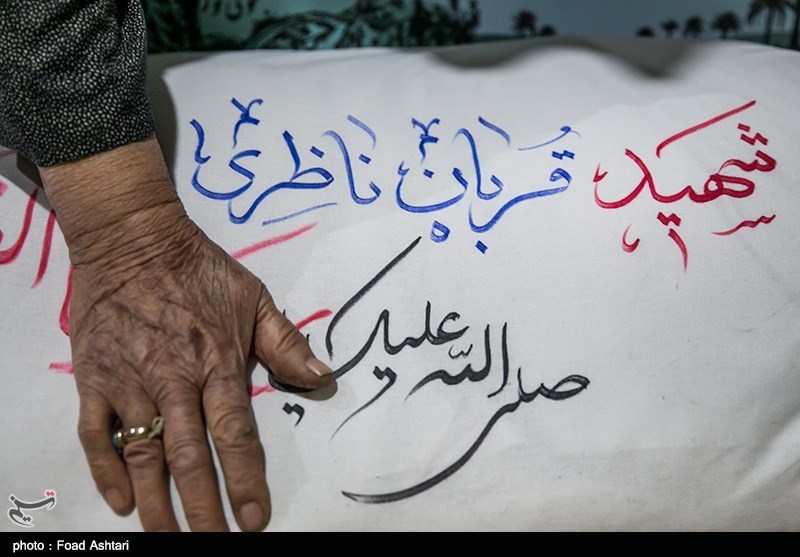 شهید قربان ناظری
صلی الله علیک یا
photo : Foad Ashtari
تسنیم